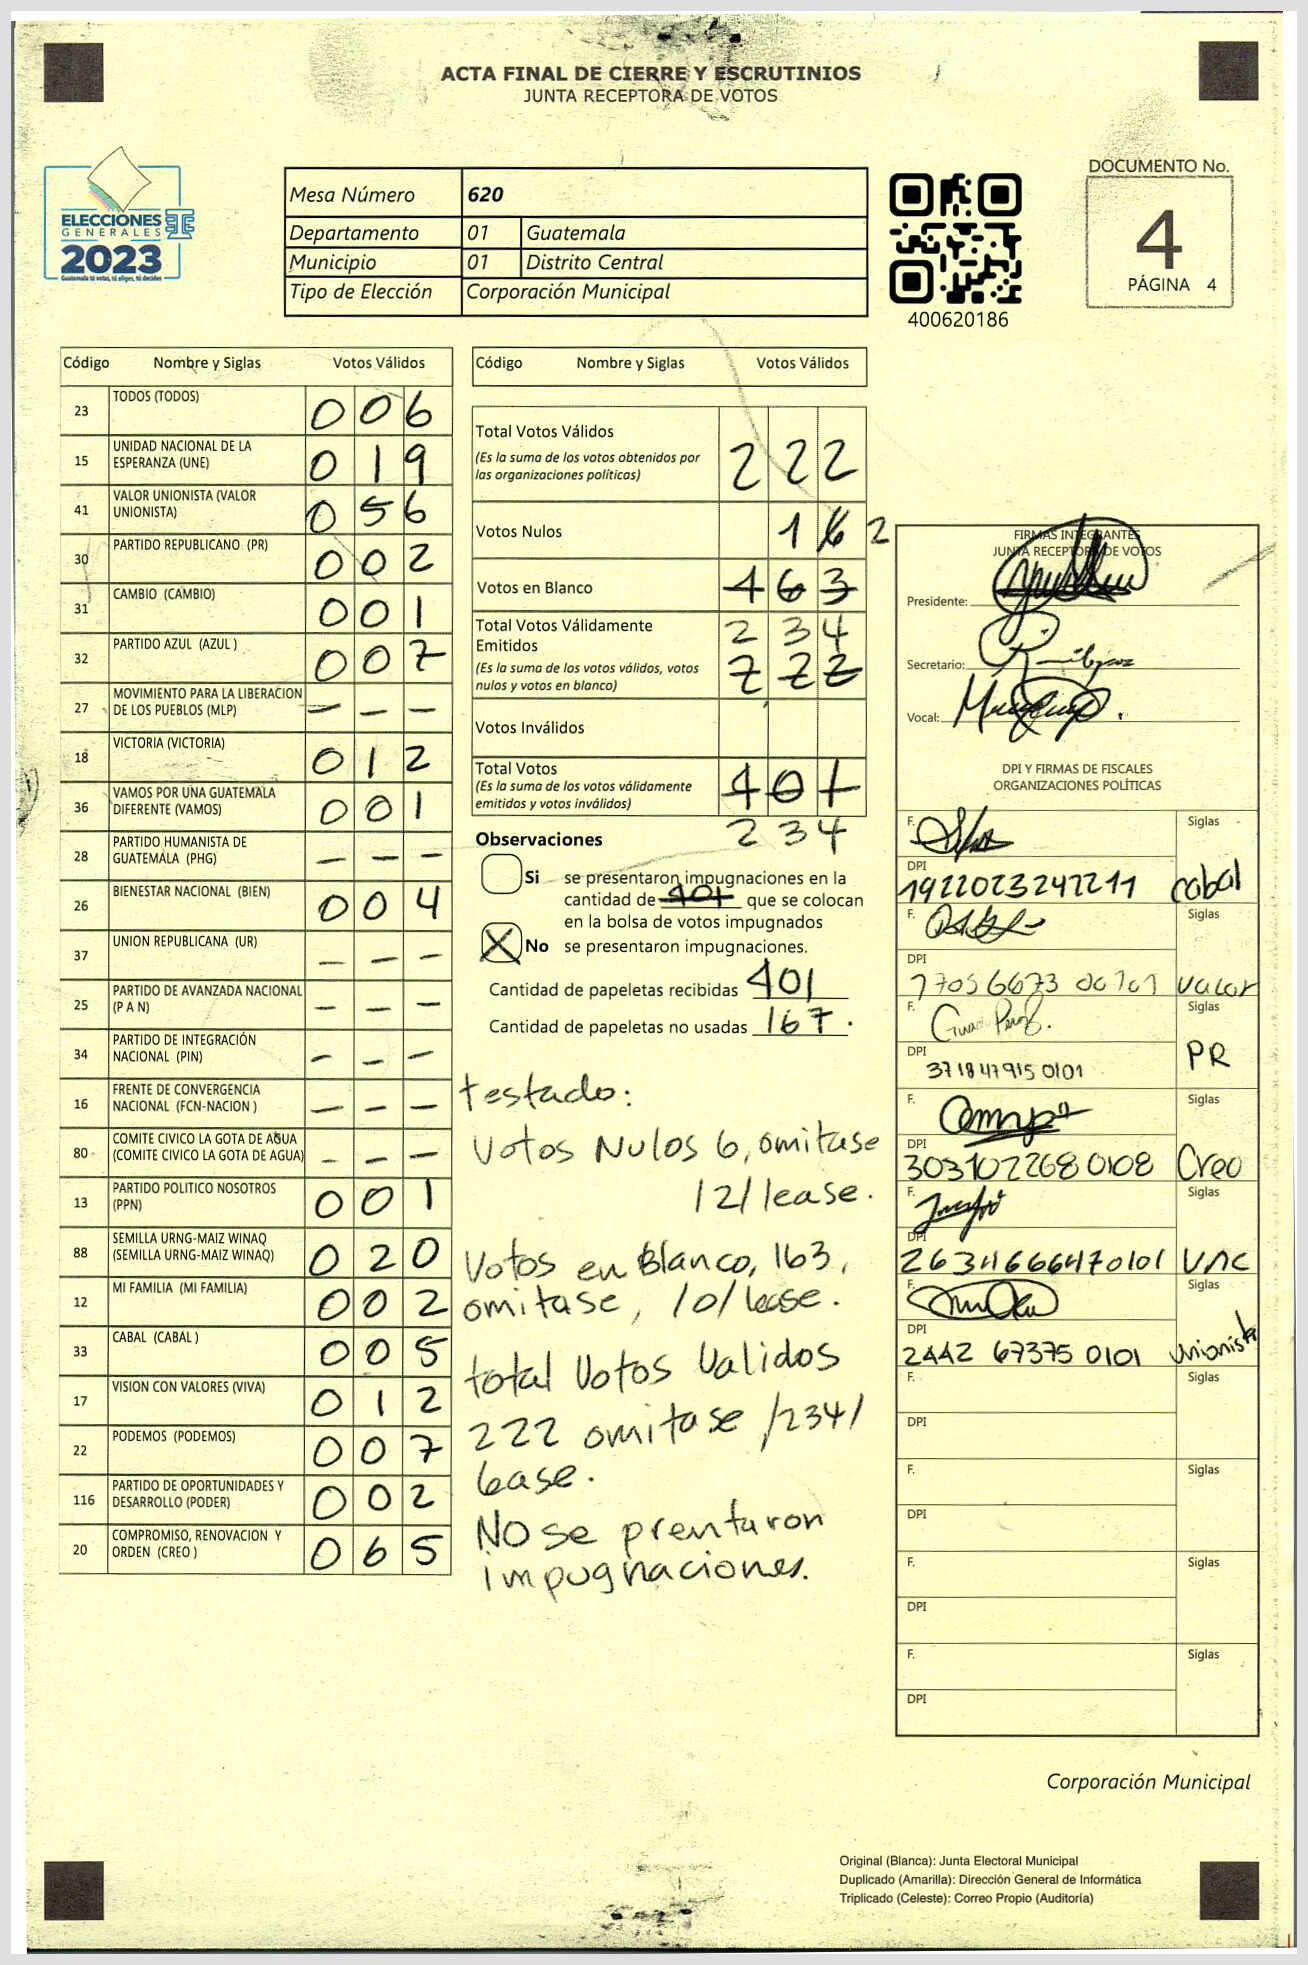 ACTA FINAL DE CIERRE Y ESCRUTINIOS
JUNTA RECEPTORA DE VOTOS
ELECCIONES
GENERALES
2023
Guatemala tú votas, tú eliges, tú decides
Mesa Número 620
Departamento 01 Guatemala
Municipio 01 Distrito Central
Tipo de Elección Corporación Municipal
400620186
DOCUMENTO No.
4
PÁGINA 4
Código Nombre y Siglas Votos Válidos
23 TODOS (TODOS) 0 0 6
15 UNIDAD NACIONAL DE LA ESPERANZA (UNE) 0 1 9
41 VALOR UNIONISTA (VALOR UNIONISTA) 0 5 6
30 PARTIDO REPUBLICANO (PR) 0 0 2
31 CAMBIO (CAMBIO) 0 0 1
32 PARTIDO AZUL (AZUL ) 0 0 7
27 MOVIMIENTO PARA LA LIBERACION DE LOS PUEBLOS (MLP) — — —
18 VICTORIA (VICTORIA) 0 1 2
36 VAMOS POR UNA GUATEMALA DIFERENTE (VAMOS) 0 0 1
28 PARTIDO HUMANISTA DE GUATEMALA (PHG) — — —
26 BIENESTAR NACIONAL (BIEN) 0 0 4
37 UNION REPUBLICANA (UR) — — —
25 PARTIDO DE AVANZADA NACIONAL (P A N) — — —
34 PARTIDO DE INTEGRACIÓN NACIONAL (PIN) — — —
16 FRENTE DE CONVERGENCIA NACIONAL (FCN-NACION ) — — —
80 COMITE CIVICO LA GOTA DE AGUA (COMITE CIVICO LA GOTA DE AGUA) — — —
13 PARTIDO POLITICO NOSOTROS (PPN) 0 0 1
88 SEMILLA URNG-MAIZ WINAQ (SEMILLA URNG-MAIZ WINAQ) 0 2 0
12 MI FAMILIA (MI FAMILIA) 0 0 2
33 CABAL (CABAL ) 0 0 5
17 VISION CON VALORES (VIVA) 0 1 2
22 PODEMOS (PODEMOS) 0 0 7
116 PARTIDO DE OPORTUNIDADES Y DESARROLLO (PODER) 0 0 2
20 COMPROMISO, RENOVACION Y ORDEN (CREO ) 0 6 5
Código Nombre y Siglas Votos Válidos
Total Votos Válidos 2 2 2
(Es la suma de los votos obtenidos por
las organizaciones políticas)
Votos Nulos 1 6 2
Votos en Blanco 4 6 3
Total Votos Válidamente 2 3 4
Emitidos
(Es la suma de los votos válidos, votos 2 2 2
nulos y votos en blanco)
Votos Inválidos
Total Votos 4 0 1
(Es la suma de los votos válidamente
emitidos y votos inválidos)
2 3 4
Observaciones
Si se presentaron impugnaciones en la
cantidad de 401 que se colocan
en la bolsa de votos impugnados
X No se presentaron impugnaciones.
Cantidad de papeletas recibidas 401
Cantidad de papeletas no usadas 167.
testado:
Votos Nulos 6, omitase
12/lease.
Votos en Blanco, 163,
omitase, /0/ lease.
total Votos Validos
222 omitase /234/
lease.
NO se prentaron
impugnaciones.
FIRMAS INTEGRANTES
JUNTA RECEPTORA DE VOTOS
Presidente:
Secretario:
Vocal:
DPI Y FIRMAS DE FISCALES
ORGANIZACIONES POLÍTICAS
F. Siglas
DPI
1922023242211 cabal
F. Siglas
DPI
valor
F. Siglas
DPI PR
371847915 0101
F. Siglas
DPI
303102268 0108 Creo
F. Siglas
DPI
2634666470101 UNE
F. Siglas
DPI
2442 67375 0101 unionista
F. Siglas
DPI
F. Siglas
DPI
F. Siglas
DPI
F. Siglas
DPI
Corporación Municipal
Original (Blanca): Junta Electoral Municipal
Duplicado (Amarilla): Dirección General de Informática
Triplicado (Celeste): Correo Propio (Auditoría)